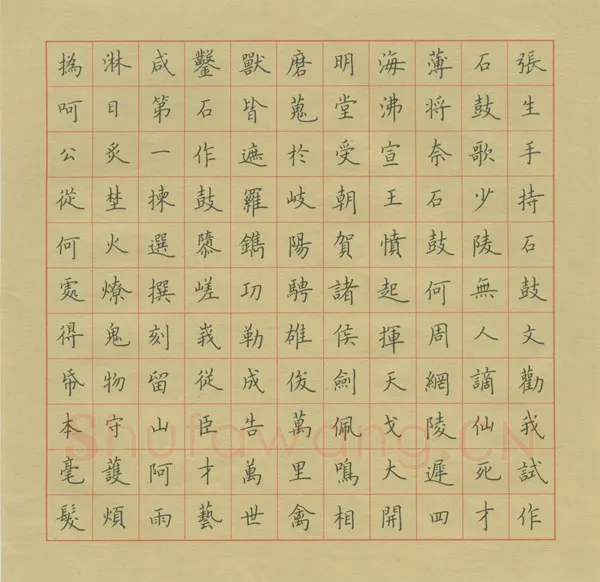 張生手持石鼓文勸我試作
石鼓歌少陵無人謫仙死才
薄将奈石鼓何周網陵遲四
海沸宣王憤起揮天戈大開
明堂受朝賀諸侯劍佩鳴相
磨蒐於岐陽騁雄俊萬里禽
獸皆遮羅鐫功勒成告萬世
鑿石作鼓隳嵯峩從臣才藝
咸第一揀選撰刻留山阿雨
淋日炙埜火燎鬼物守護煩
撝呵公從何處得帋本毫髮
Shufawang.CN